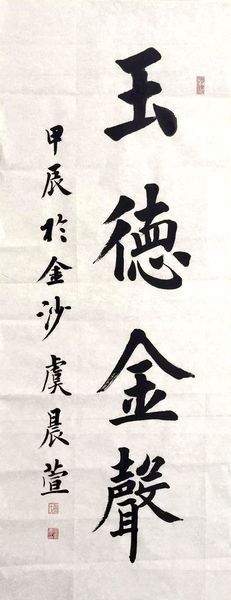 玉德金聲
甲辰於金沙虞晨萱